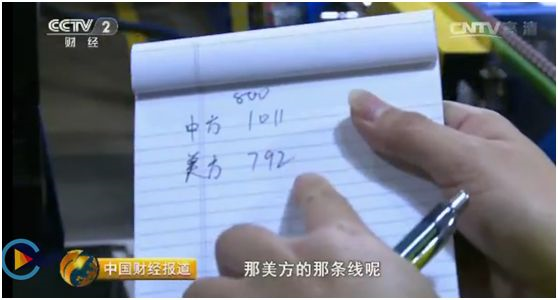 CCTV 2
财经
CNTV高清
800
中方 1011
美方 792
中国财经报道
那美方的那条线呢